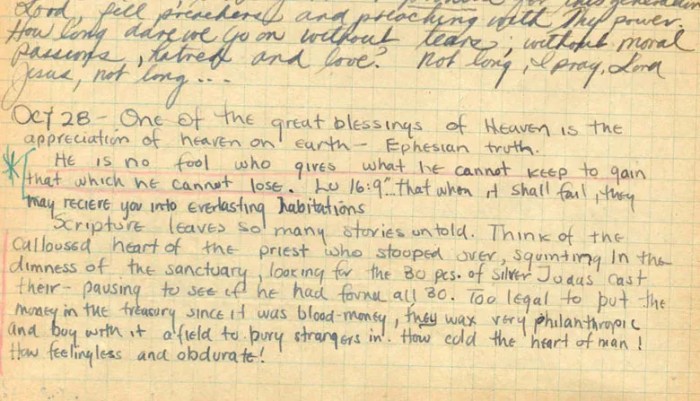 Lord fill preachers and preaching with Thy power.
How long dare we go on without tears, without moral
passions, hatred and love? Not long, I pray, Lord
Jesus, not long...
Oct 28 - One of the great blessings of Heaven is the
appreciation of heaven on earth - Ephesian truth.
He is no fool who gives what he cannot keep to gain
that which he cannot lose. Lu 16:9 "that when it shall fail, they
may reciere you into everlasting habitations
Scripture leaves so many stories untold. Think of the
calloused heart of the priest who stooped over, squinting in the
dimness of the sanctuary, looking for the 30 pcs. of silver Judas cast
their - pausing to see if he had found all 30. Too legal to put the
money in the treasury since it was blood-money, they wax very philanthropic
and buy with it a field to bury strangers in. How cold the heart of man!
How feelingless and obdurate!